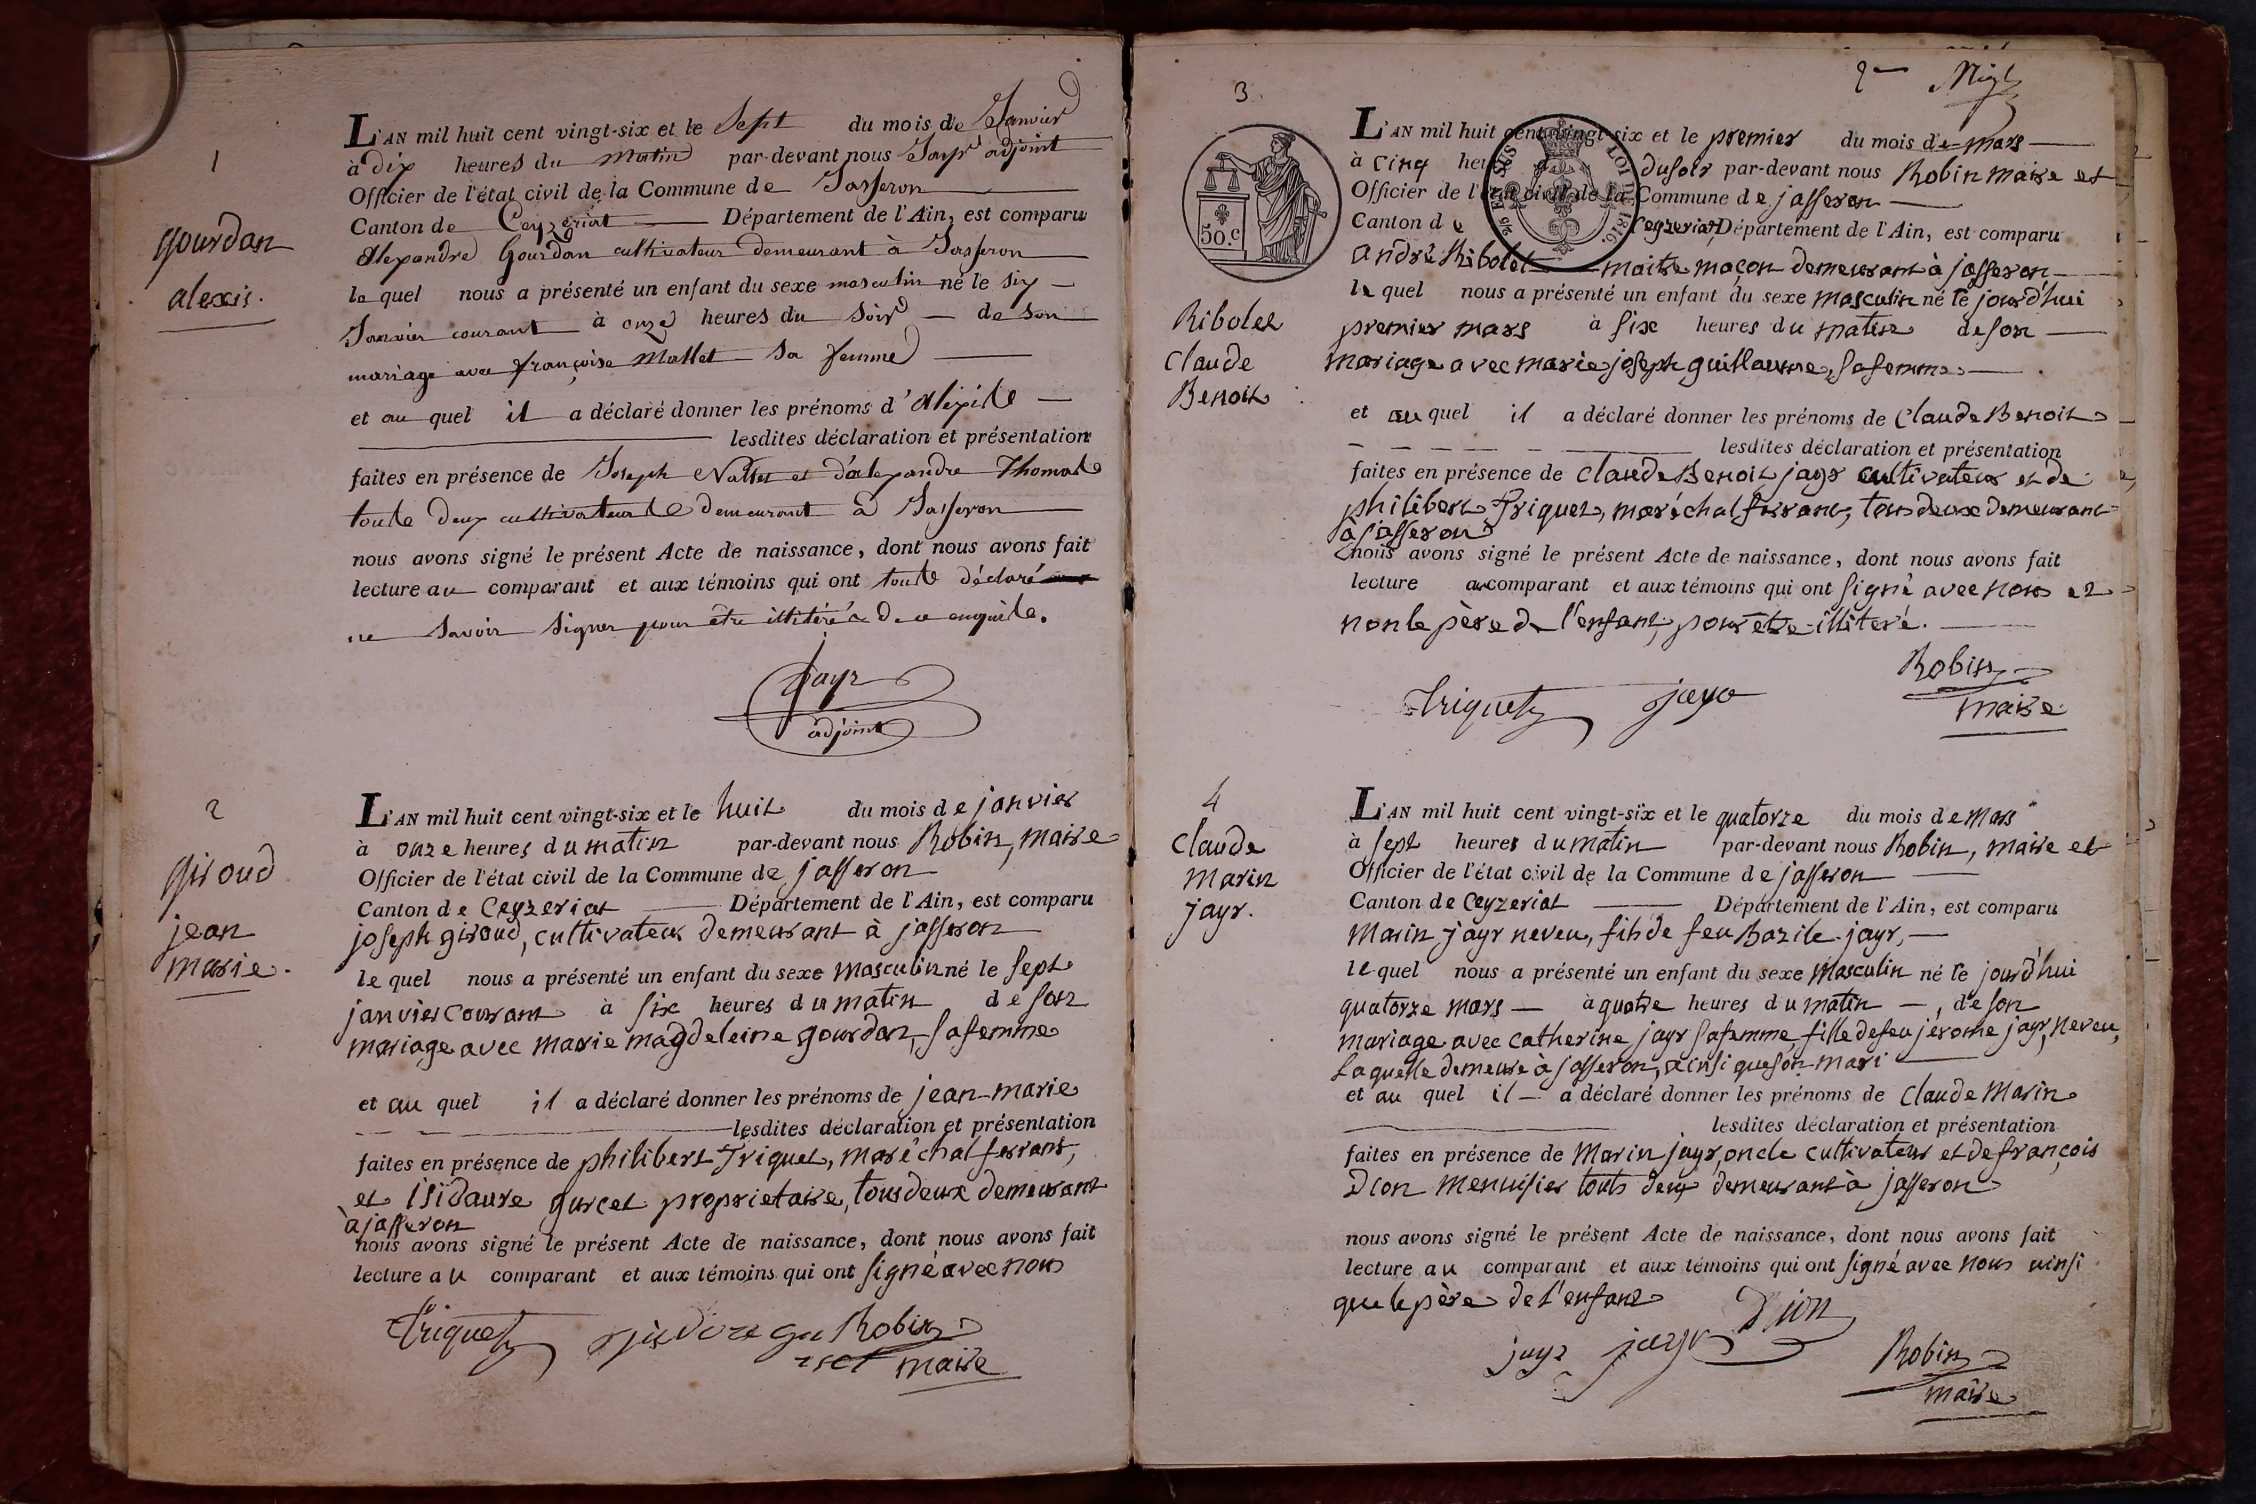 1
Gourdan
alexis.
L'AN mil huit cent vingt-six et le Sept du mois de Janvier
à dix heures du matin par-devant nous Jayr adjoint
Officier de l'état civil de la Commune de Jasseron
Canton de Ceyzeriat Département de l'Ain, est comparu
Alexandre Gourdan cultivateur demeurant à Jasseron
le quel nous a présenté un enfant du sexe masculin né le six
Janvier courant à onze heures du Soir de son
mariage avec françoise Mallet Sa femme
et au quel il a déclaré donner les prénoms d'Alexis
lesdites déclaration et présentation
faites en présence de Joseph et d'alexandre Thomas
tous deux cultivateurs demeurant à Jasseron
nous avons signé le présent Acte de naissance, dont nous avons fait
lecture au comparant et aux témoins qui ont tous déclaré
ne Savoir Signer pour être illitéré de ce enquis.
Jayr
adjoint
2
Giroud
jean
marie.
L'AN mil huit cent vingt-six et le huit du mois de janvier
à onze heures du matin par-devant nous Robin, maire
Officier de l'état civil de la Commune de jasseron
Canton de Ceyzeriat Département de l'Ain, est comparu
joseph giroud, cultivateur demeurant à jasseron
le quel nous a présenté un enfant du sexe masculin né le sept
janvier courant à six heures du matin de son
mariage avec marie magdeleine gourdan, sa femme
et au quel il a déclaré donner les prénoms de jean-marie
lesdites déclaration et présentation
faites en présence de philibert Triquet, maréchal ferrant,
et isidaure gurcet proprietaire, tous deux demeurant
à jasseron
nous avons signé le présent Acte de naissance, dont nous avons fait
lecture au comparant et aux témoins qui ont signé avec nous
Triquet isidore gu Robin
rset maire
2me
3
50.c
Ribolet
Claude
Benoit
L'AN mil huit cent vingt-six et le premier du mois de mars
à cinq heures du soir par-devant nous Robin maire et
Officier de l'état civil de la Commune de jasseron
Canton de Ceyzeriat Département de l'Ain, est comparu
andré Ribolet maitre maçon demeurant à jasseron
le quel nous a présenté un enfant du sexe masculin né le jourd'hui
premier mars à six heures du matin de son
mariage avec marie joseph guillaume, sa femme
et au quel il a déclaré donner les prénoms de Claude Benoit
lesdites déclaration et présentation
faites en présence de Claude Benoit jayr cultivateur et de
philibert Triquet, maréchal ferrant, tous deux demeurant
à jasseron
nous avons signé le présent Acte de naissance, dont nous avons fait
lecture au comparant et aux témoins qui ont signé avec nous et
non le père de l'enfant, pour être illiteré.
Robin
Triquet jayr
maire
4
Claude
Marin
jayr.
L'AN mil huit cent vingt-six et le quatorze du mois de mars
à sept heures du matin par-devant nous Robin, maire et
Officier de l'état civil de la Commune de jasseron
Canton de Ceyzeriat Département de l'Ain, est comparu
Marin jayr neveu, fils de feu Bazile jayr,
le quel nous a présenté un enfant du sexe masculin né le jourd'hui
quatorze mars à quatre heures du matin, de son
mariage avec catherine jayr sa femme fille de feu jérome jayr, neveu,
laquelle demeure à jasseron, ainsi que son mari
et au quel il a déclaré donner les prénoms de Claude Marin
lesdites déclaration et présentation
faites en présence de Marin jayr, oncle cultivateur et de françois
Dion menuisier touts deux demeurant à jasseron
nous avons signé le présent Acte de naissance, dont nous avons fait
lecture au comparant et aux témoins qui ont signé avec nous ainsi
que le père de l'enfant
Dion
jayr jayr
Robin
maire